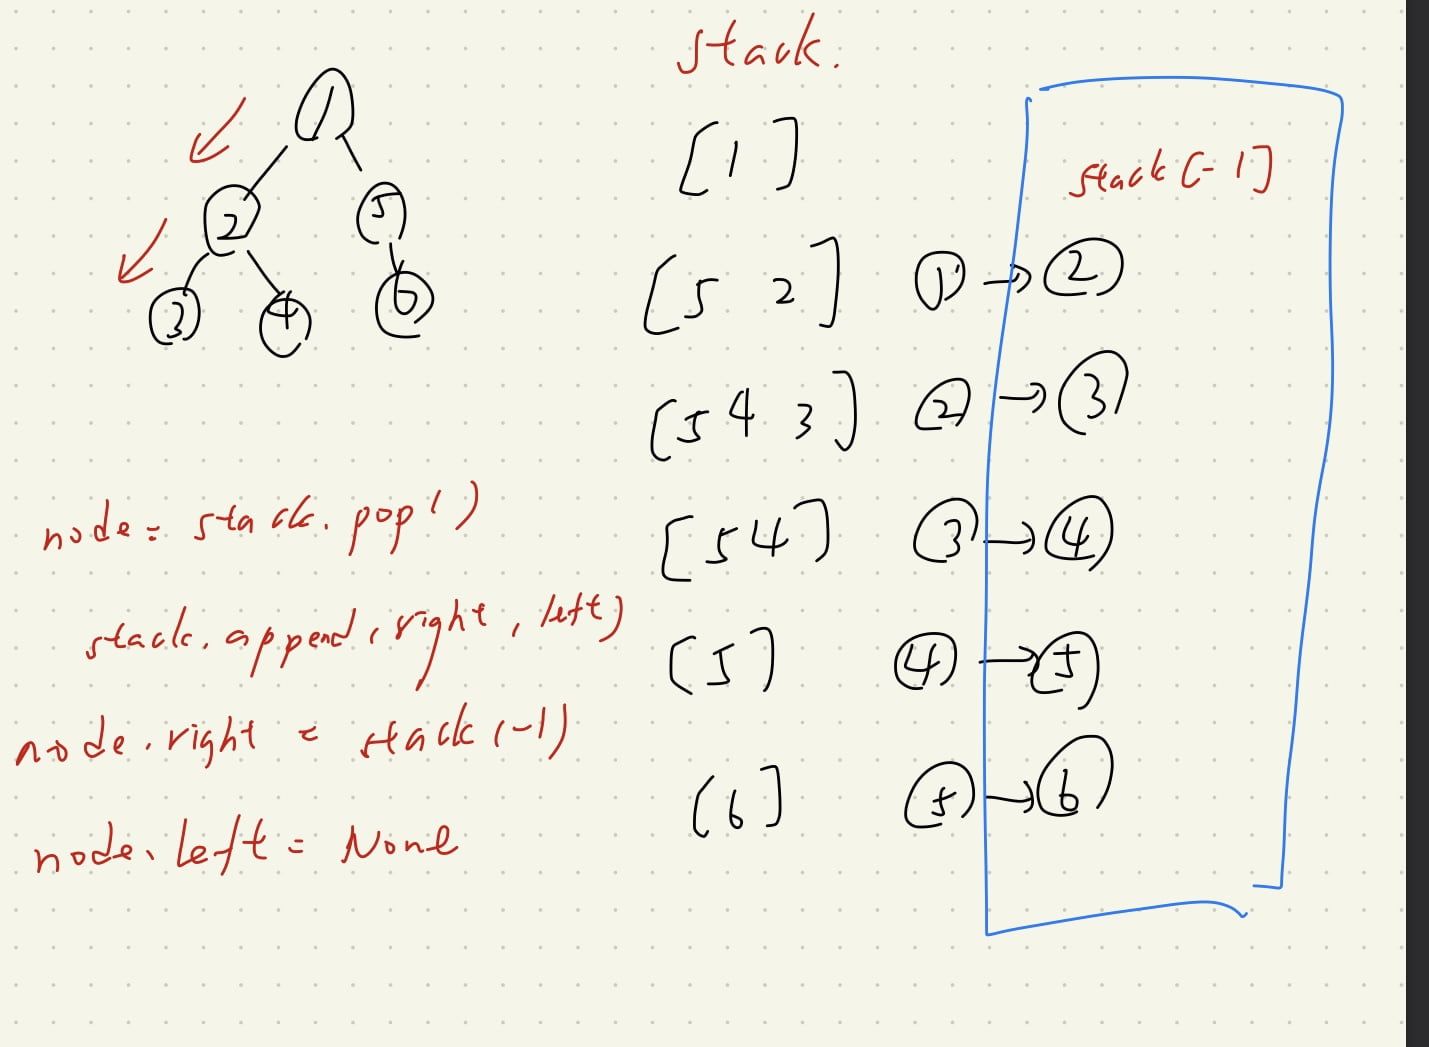 stack.
1
[1]
stack[-1]
2 5
[5 2] 1 → 2
3 4 6
[5 4 3] 2 → 3
node = stack.pop()
[5 4] 3 → 4
stack.append(right, left)
[5] 4 → 5
node.right = stack(-1)
[6] 5 → 6
node.left = None